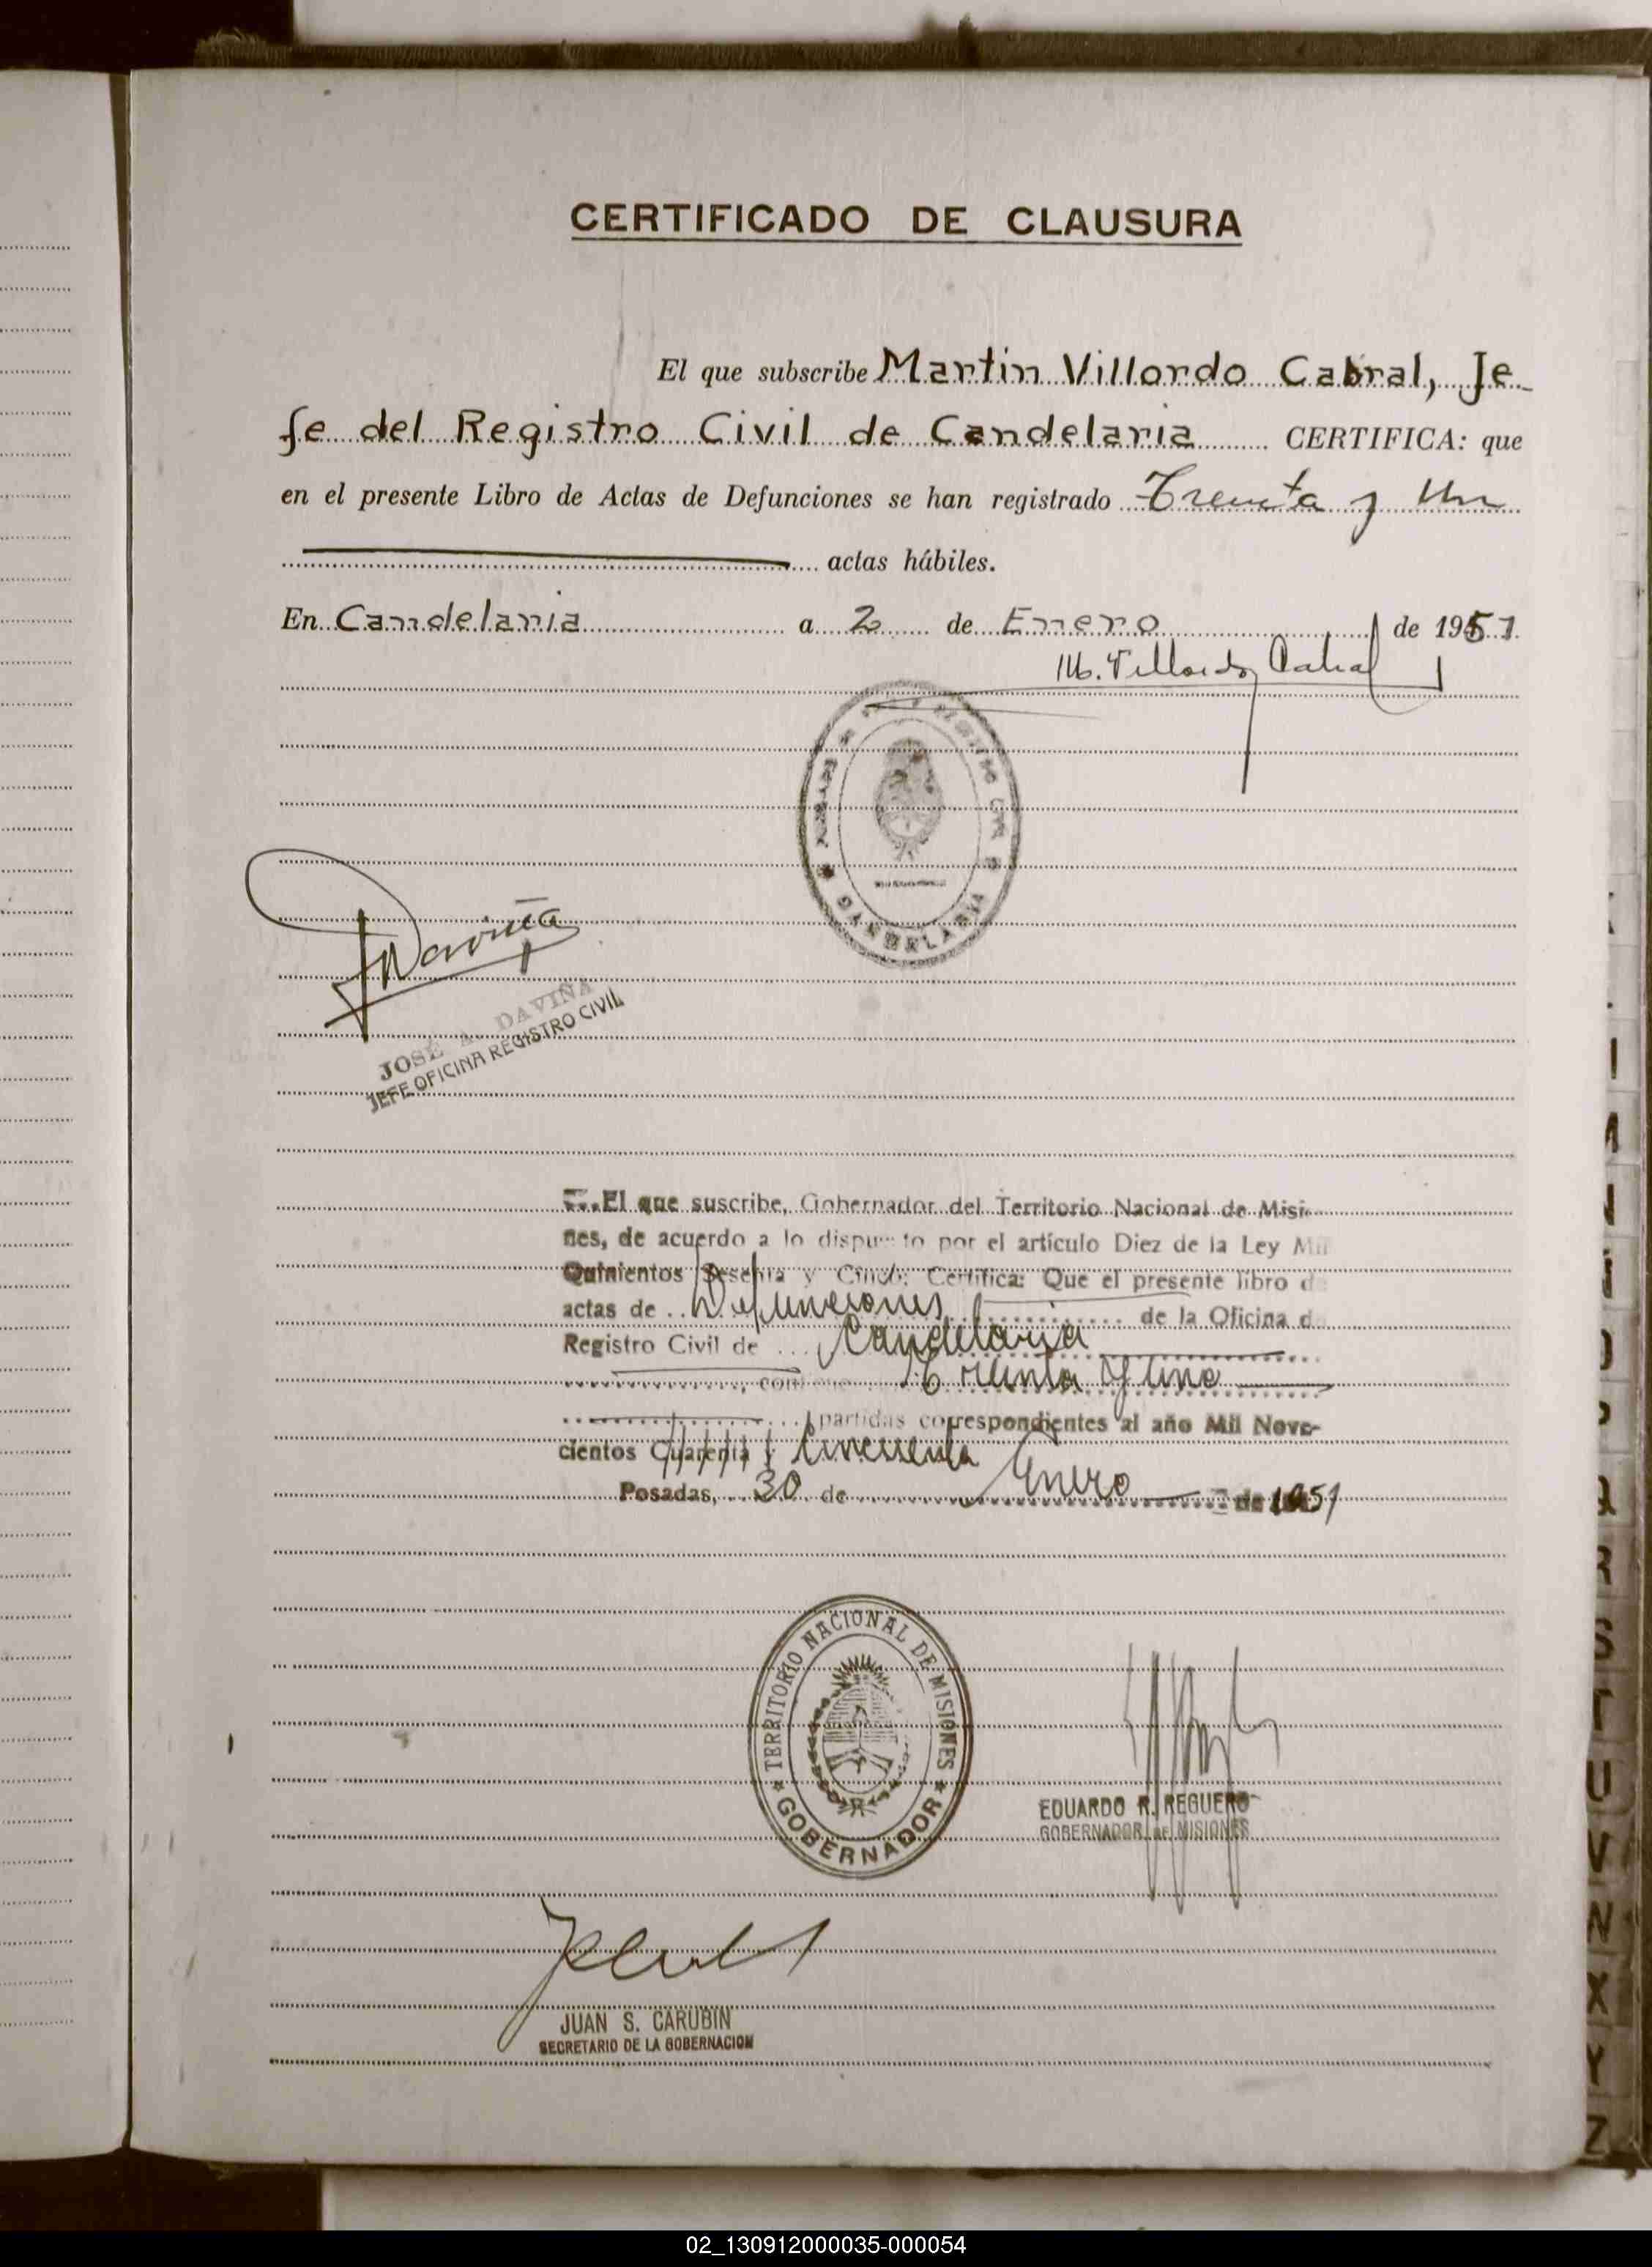 CERTIFICADO DE CLAUSURA
El que subscribe Martin Villordo Cabral, Je-
fe del Registro Civil de Candelaria CERTIFICA: que
en el presente Libro de Actas de Defunciones se han registrado Treinta y Un
actas hábiles.
En Candelaria a 2 de Enero de 1951
M. Villordo Cabral
REGISTRO CIVIL
CANDELARIA
Daviña
JOSÉ A. DAVIÑA
JEFE OFICINA REGISTRO CIVIL
El que suscribe, Gobernador del Territorio Nacional de Misio
nes, de acuerdo a lo dispuesto por el artículo Diez de la Ley Mil
Quinientos Sesenta y Cinco; Certifica: Que el presente libro d
actas de Defunciones de la Oficina d
Registro Civil de Candelaria
contiene Treinta y uno
partidas correspondientes al año Mil Nove-
cientos Cuarenta y Cincuenta
Posadas, 30 de Enero de 1951
TERRITORIO NACIONAL DE MISIONES
GOBERNADOR
EDUARDO R. REGUERO
GOBERNADOR DE MISIONES
JUAN S. CARUBIN
SECRETARIO DE LA GOBERNACION
Q
R
S
T
U
V
X
Y
Z
02_130912000035-000054